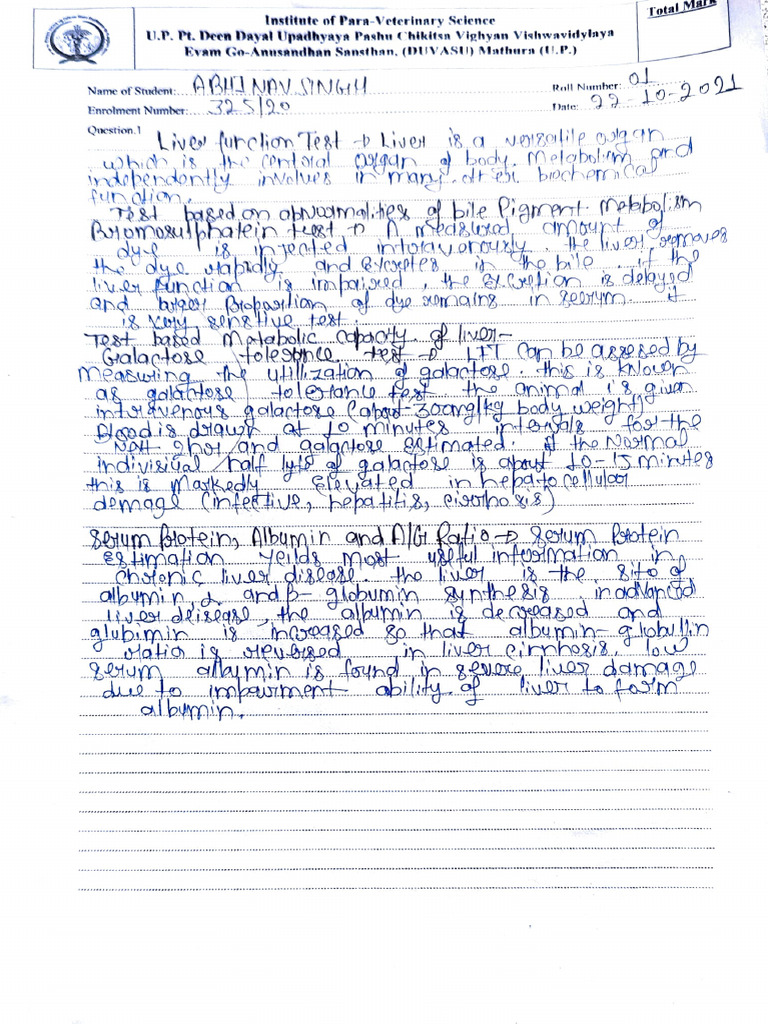 Total Mark
Institute of Para-Veterinary Science
U.P. Pt. Deen Dayal Upadhyaya Pashu Chikitsa Vighyan Vishwavidylaya
Evam Go-Anusandhan Sansthan, (DUVASU) Mathura (U.P.)
Name of Student: ABHINAV SINGH Roll Number: 01
Enrolment Number: 325/20 Date: 22-10-2021
Question.1 Liver function Test → Liver is a versatile organ
which is the central organ of body. Metabolism and
independently involves in many other biochemical
function.
Test based on abnormalities of bile Pigment Metabolism
Bromosulphatein test → A measured amount of
dye is injected intoravenously. the liver removes
the dye rapidly and excretes in the bile. if the
liver function is impaired, the excretion is delayed
and larger Proportion of dye remains in serum. it
is very sensitive test
Test based Metabolic Capacity of liver-
Galactose tolerance test → LFT can be assesed by
Measuring the utilization of galactose. this is known
as galactose tolerance test the animal is given
intravenous galactose (about 300mg/kg body weight)
Blood is drawn at 10 minutes intervals for the
and galactose estimated. if the Normal
indivisiual half lyfe of galactose is about 10-15 minutes
this is Markedly Elevated in hepatocellular
damage (infective, hepatitis, cirrhosis)
Serum Protein, Albumin and A/G Ratio → Serum Protein
Estimation Yeilds most useful information in
Chronic liver disease. the liver is the Site of
albumin α and β- globumin synthesis in advanced
liver deisease, the albumin is decreased and
glubimin is increased so that albumin-globullin
ratio is reversed in liver cirrhosis low
serum albymin is found in severe liver damage
due to impairment ability of liver to form
albumin.